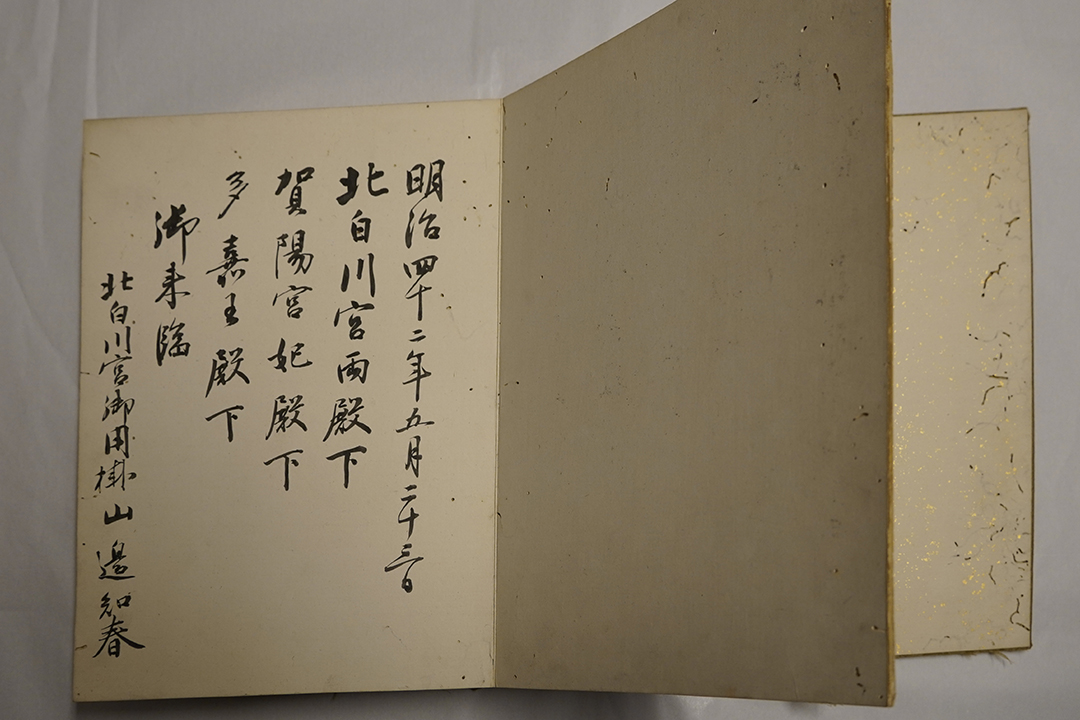 明治四十二年五月二十三日
北白川宮両殿下
賀陽宮妃殿下
多嘉王殿下
御来臨
北白川宮御用掛山邉知春